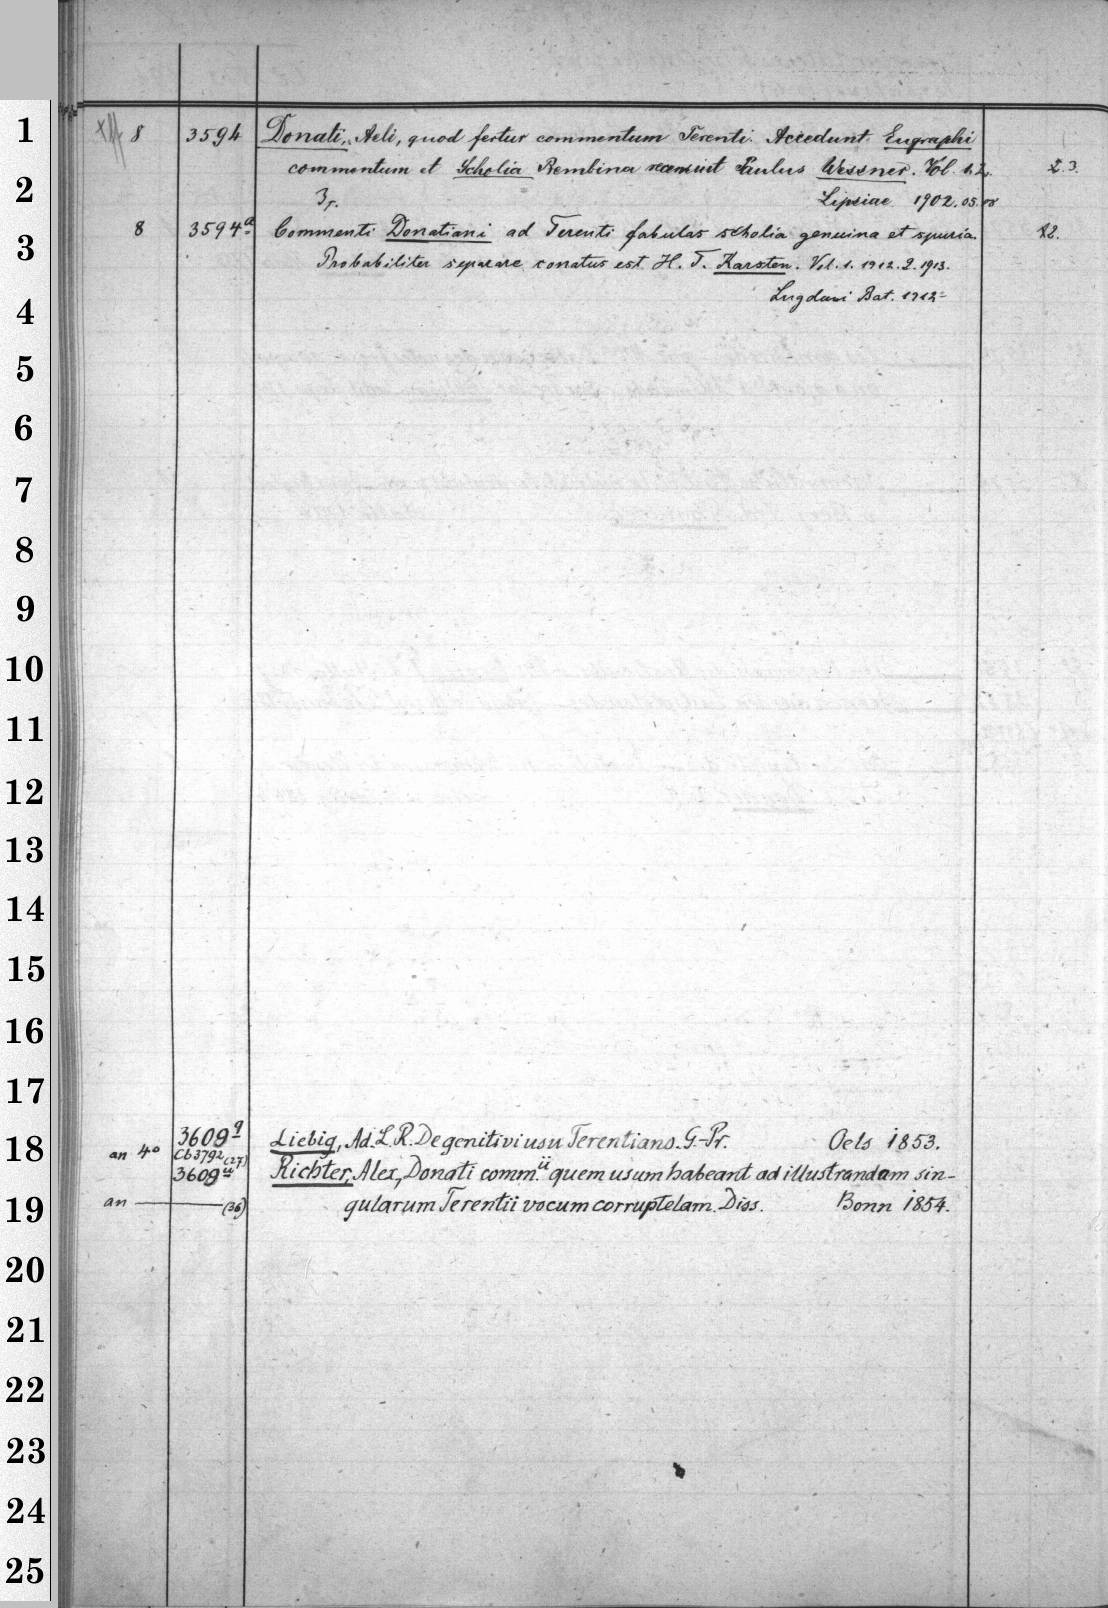 1
8 3594 Donati, Aeli, quod fertur commentum Terenti. Accedunt Eugraphi
2
commentum et Scholia Bembina recensuit Paulus Wessner. Vol. 1.2. 2.3.
3. Lipsiae 1902.05.08
3
8 3594a Commenti Donatiani ad Terenti fabulas scholia genuina et spuria
Probabiliter separare conatus est H. T. Karsten. Vol. 1. 1912. 2. 1913.
4
Lugduni Bat. 1912-
5
6
7
8
9
10
11
12
13
14
15
16
17
18
an 4° 3609q Liebig, Ad. L. R. De genitivi usu Terentiano. G.-Pr. Oels 1853.
Cb3792(27)
3609u Richter, Alex., Donati comm.ii quem usum habeant ad illustrandam sin-
19
an — (36) gularum Terentii vocum corruptelam. Diss. Bonn 1854.
20
21
22
23
24
25